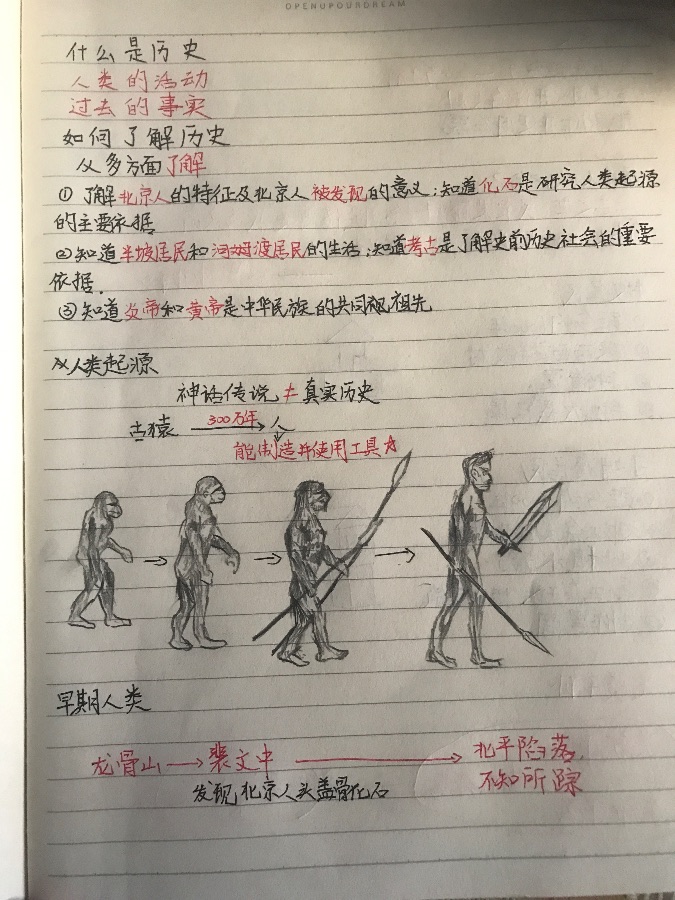 OPENUPOURDREAM
什么是历史
人类的活动
过去的事实
如何了解历史
从多方面了解
① 了解北京人的特征及北京人被发现的意义;知道化石是研究人类起源
的主要依据.
②知道半坡居民和河姆渡居民的生活;知道考古是了解史前历史社会的重要
依据.
③知道炎帝和黄帝是中华民族的共同祖先
从人类起源
神话传说≠真实历史
古猿 300万年 人
能制造并使用工具☆
早期人类
龙骨山→裴文中→北平陷落,
不知所踪
发现北京人头盖骨化石